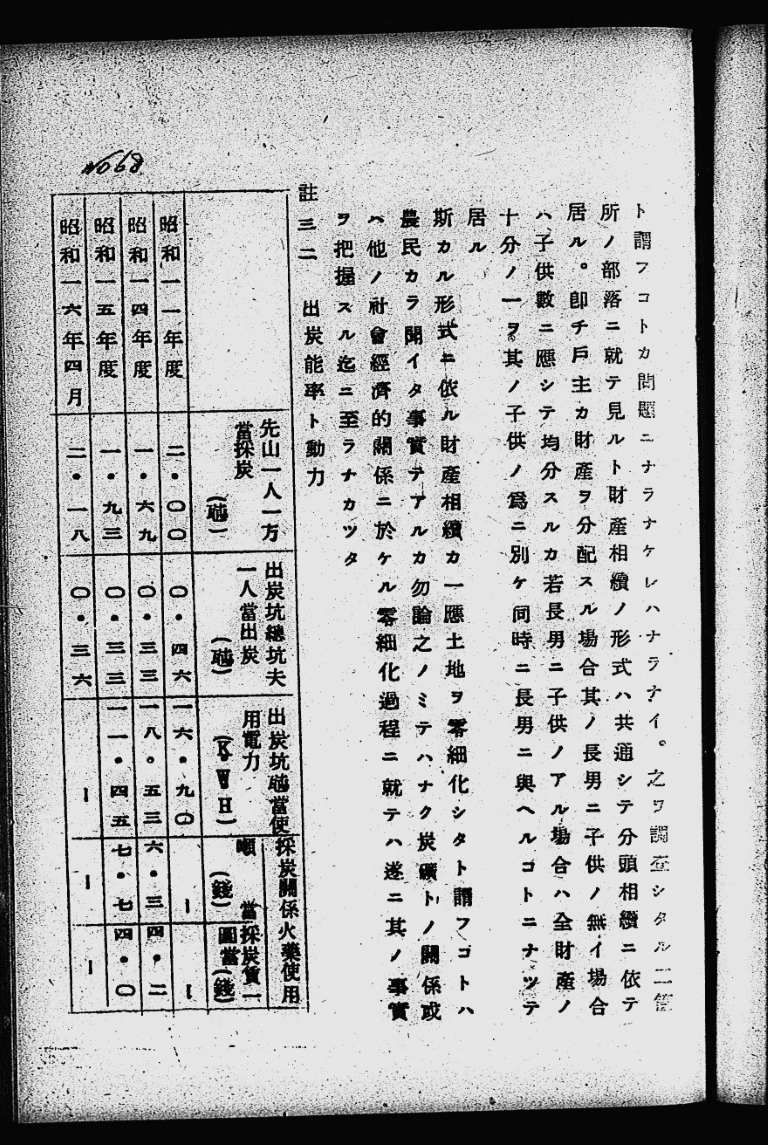 ト謂フコトカ問題ニナラナケレハナラナイ。之ヲ調査シタル二管
所ノ部落ニ就テ見ルト財產相續ノ形式ハ共通シテ分頭相續ニ依テ
居ル。卽チ戶主カ財產ヲ分配スル場合其ノ長男ニ子供ノ無イ場合
ハ子供數ニ應シテ均分スルカ若長男ニ子供ノアル場合ハ全財產ノ
十分ノ一ヲ其ノ子供ノ爲ニ別ケ同時ニ長男ニ與ヘルコトニナツテ
居ル
斯カル形式ニ依ル財產相續カ一應土地ヲ零細化シタト謂フコトハ
農民カラ聞イタ事實テアルカ勿論之ノミテハナク炭礦トノ關係或
ハ他ノ社會經濟的關係ニ於ケル零細化過程ニ就テハ遂ニ其ノ事實
ヲ把握スル迄ニ至ラナカツタ
註三二 出炭能率ト動力
先山一人一方當採炭(瓲) 出炭坑總坑夫一人當出炭(瓲) 出炭坑瓲當使用電力(K.W.H) 採炭關係火藥使用 瓲當(錢) 採炭賃一圓當(錢)
昭和一一年度 二・〇〇 〇・四六 一六・九〇 ー ー
昭和一四年度 一・六九 〇・三三 一八・五三 六・三 四・二
昭和一五年度 一・九三 〇・三三 一一・四五 七・七 四・〇
昭和一六年四月 二・一八 〇・三六 ー ー ー